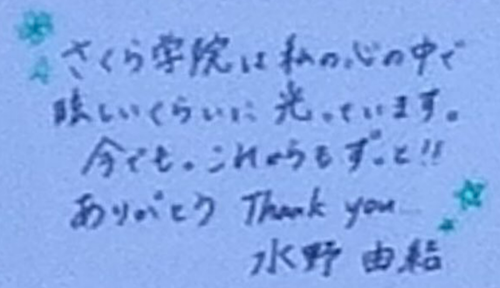 さくら学院は私の心の中で
眩しいくらいに光っています。
今でも。これからもずっと!!
ありがとう Thank you...
水野 由結